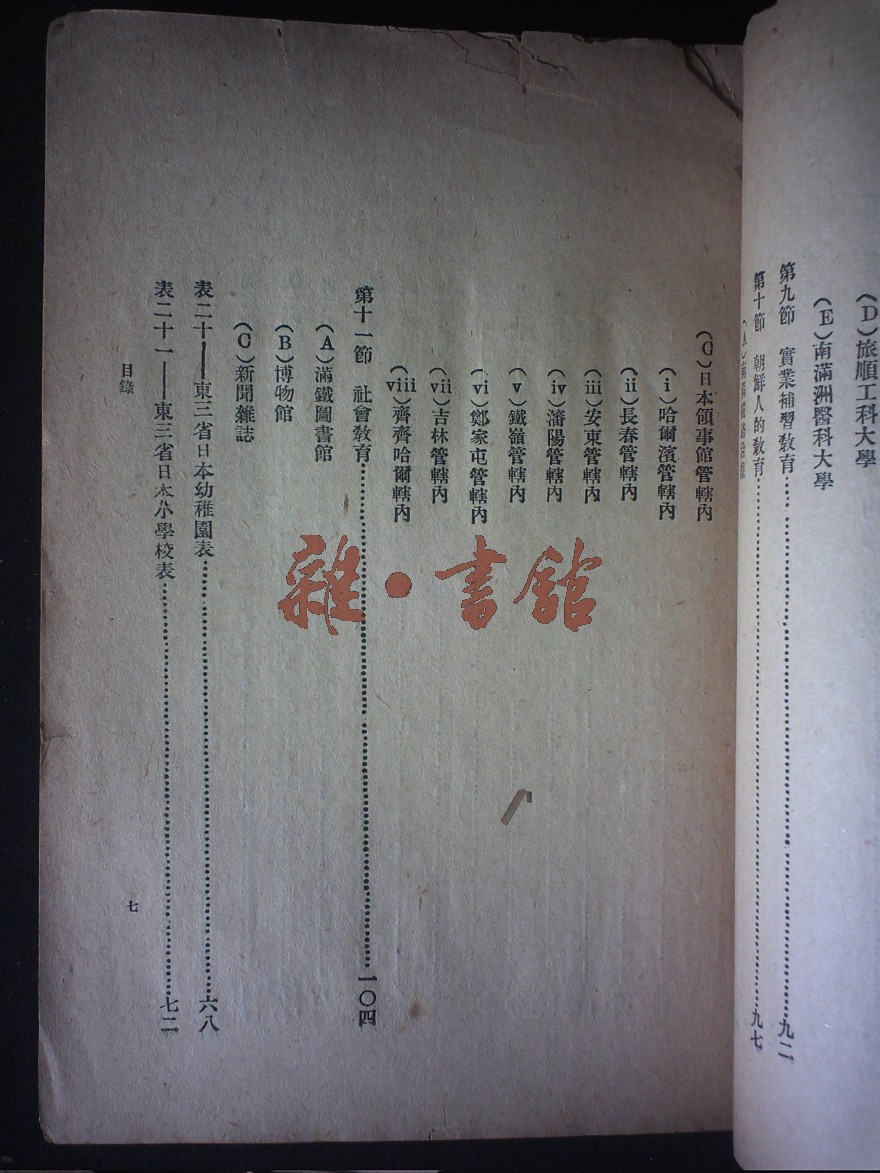 (D)旅順工科大學
(E)南滿洲醫科大學
第九節 實業補習教育……九二
第十節 朝鮮人的教育……九七
(C)日本領事館管轄內
(i)哈爾濱管轄內
(ii)長春管轄內
(iii)安東管轄內
(iv)瀋陽管轄內
(v)鐵嶺管轄內
(vi)鄭家屯管轄內
(vii)吉林管轄內
(viii)齊齊哈爾轄內
第十一節 社會教育……一〇四
(A)滿鐵圖書館
(B)博物館
(C)新聞雜誌
表二十——東三省日本幼稚園表……六八
表二十一——東三省日本小學校表……七二
目錄
七
雜·書館